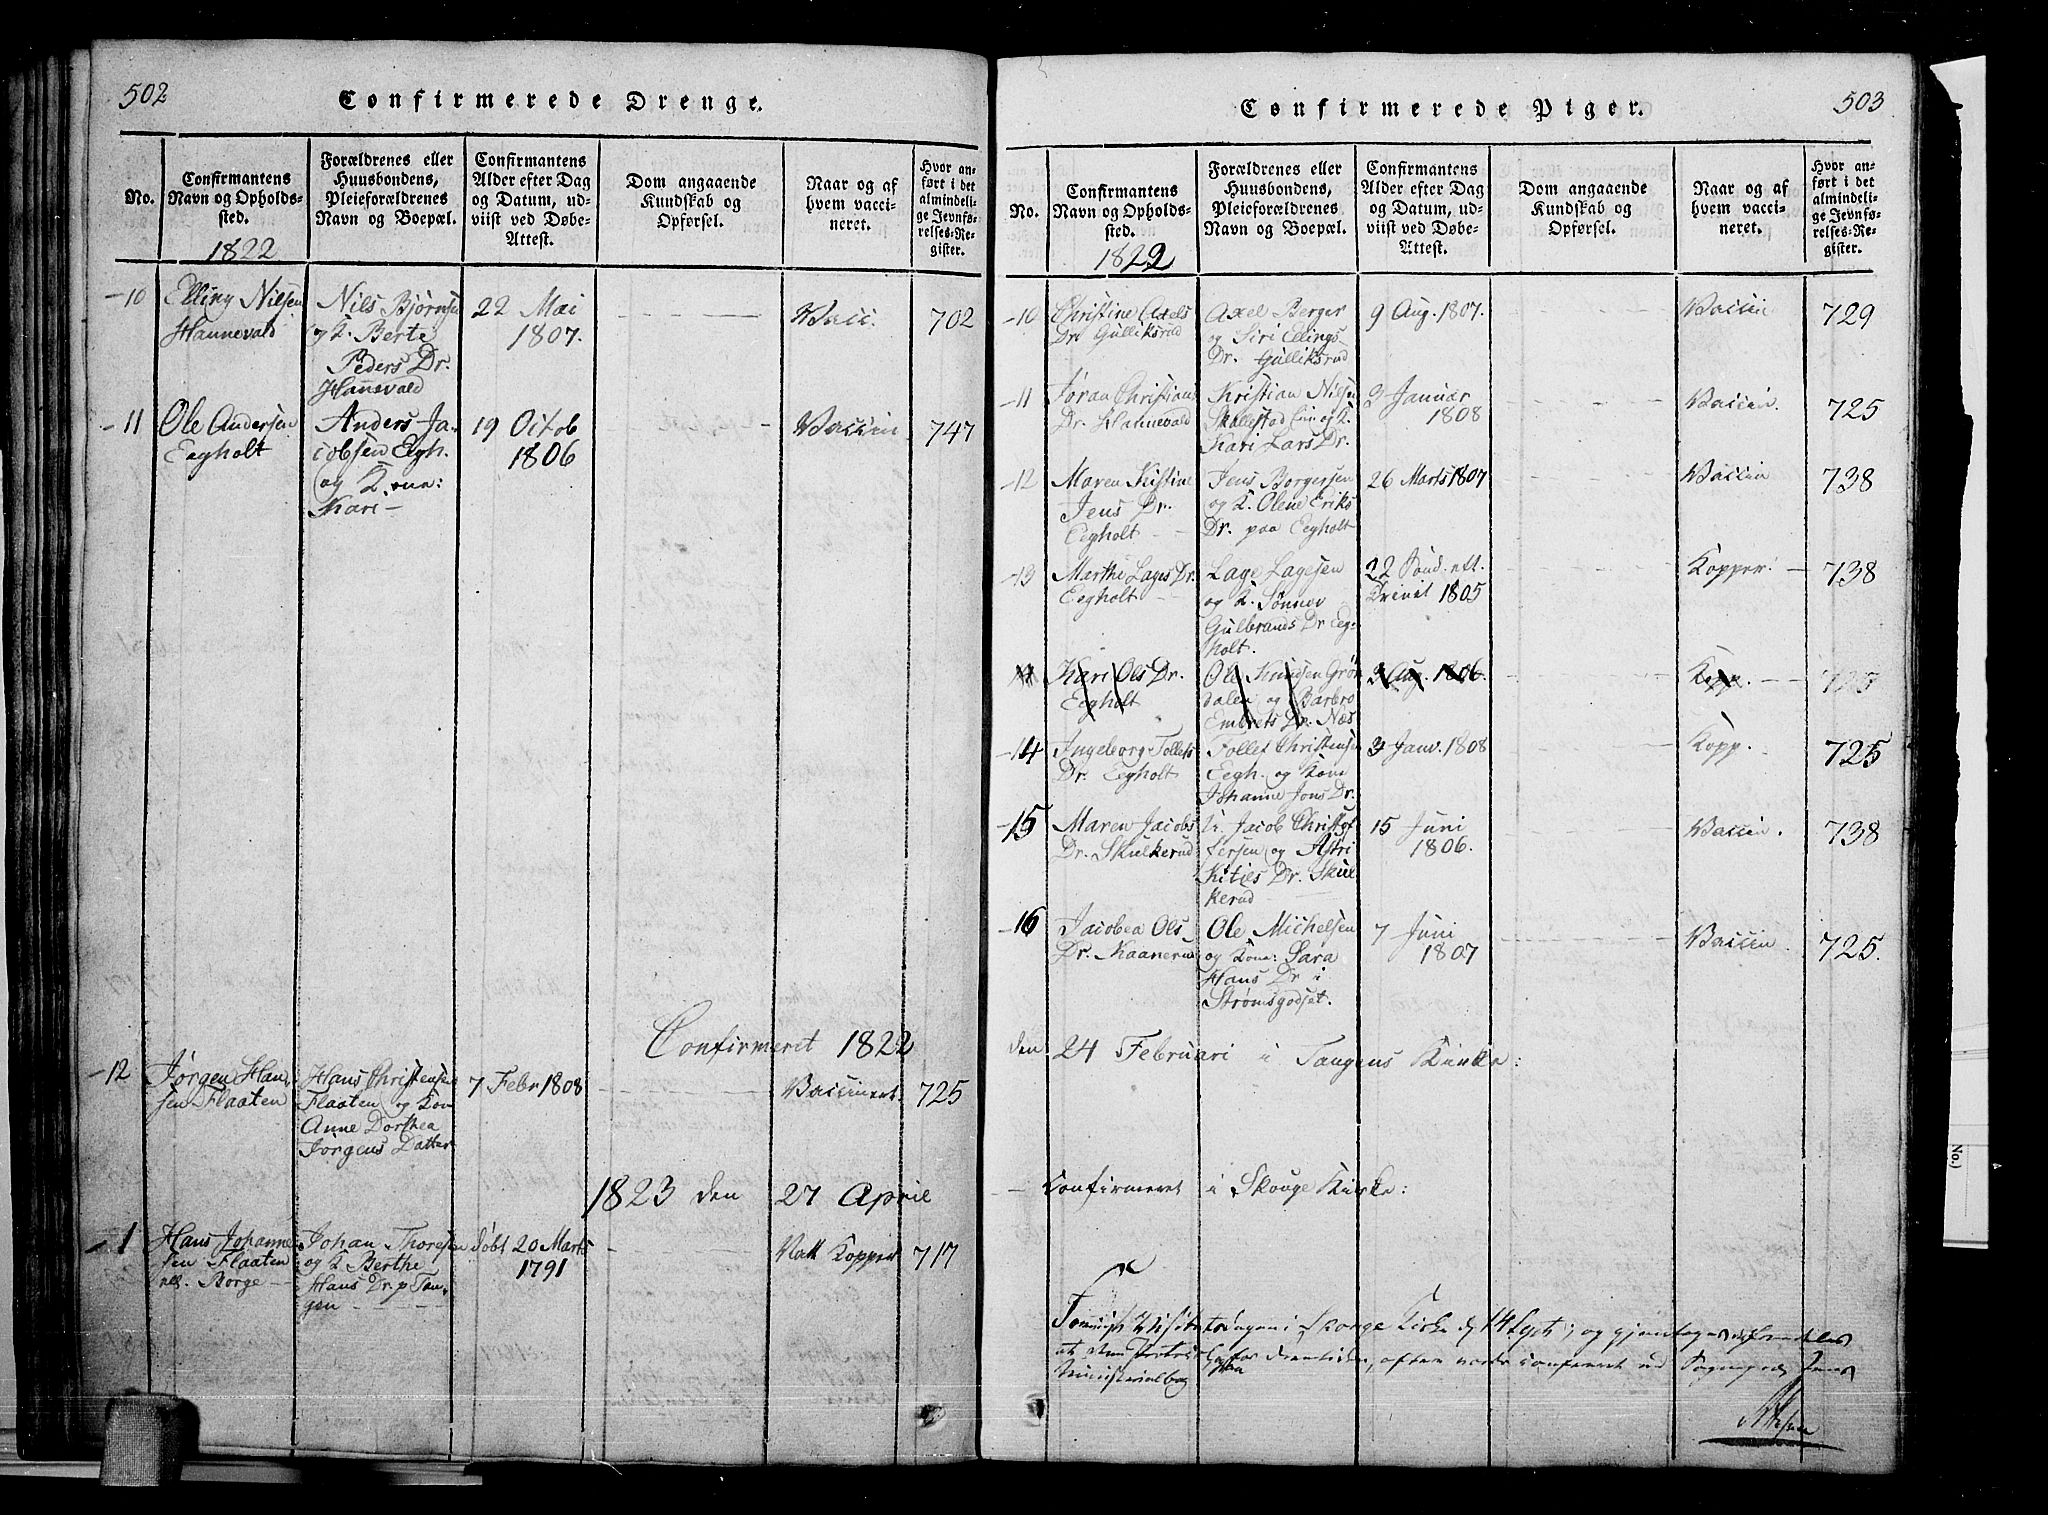 502
Confirmerede Drenge.
No.
Confirmantens
Navn og Opholds-
sted.
1822
Forældrenes eller
Huusbondens,
Pleieforældrenes
Navn og Boepæl.
Confirmantens
Alder efter Dag
og Datum, ud-
viist ved Døbe-
Attest.
Dom angaaende
Kundskab og
Opførsel.
Naar og af
hvem vacci-
neret.
Hvor an-
ført i det
almindeli-
ge Jevnfø-
relses-Re-
gister.
10
Elling Nilsen
Hannevald
Nils Bjørnsen
og K. Berte
Peders Dr.
Hannevald
22 Mai
1807.
Vacc.
702
11
Ole Andersen
Eegholt
Anders Ja-
cobsen Eegh.
og Kone:
Kari
19 Octob
1806
Vaccin
747
Confirmeret 1822
12
Jørgen Han-
sen Flaaten
Hans Christensen
Flaaten og Kon
Anne Dorthea
Jørgens Datter
7 Febr 1808
Vaccineret.
725
1823 den 27 April
1
Hans Johanne-
sen Flaaten
Borge
Johan Thoresen
og K Berthe
Hans Dr. p Tan-
gen
døbt 20 Marts
1791
Natt Kopper
717
503
Confirmerede Piger.
No.
Confirmantens
Navn og Opholds-
sted.
1822
Forældrenes eller
Huusbondens,
Pleieforældrenes
Navn og Boepæl.
Confirmantens
Alder efter Dag
og Datum, ud-
viist ved Døbe-
Attest.
Dom angaaende
Kundskab og
Opførsel.
Naar og af
hvem vacci-
neret.
Hvor an-
ført i det
almindeli-
ge Jevnfø-
relses-Re-
gister.
10
Christine Axels
Dr. Gulliksrud
Axel Berger
og Siri Ellings
Dr. Gulliksrud
9 Aug. 1807.
Vaccin
729
11
Joran Christians
Dr. Hannevald
Kristian Nilsen
Skallestad Eie og K.
Kari Lars Dr.
3 Januar
1808
Vaccin.
725
12
Maren Kistine
Jens Dr.
Eegholt
Jens Borgersen
og K. Olene Eriks
Dr. paa Eegholt
26 Marts 1807
Vaccin
738
13
Marthe Lages Dr.
Eegholt
Lage Lagesen
og K. Sønnev
Gulbrands Dr Eeg-
holt.
22 Sønd. eft.
Trinit 1805
Kopper
738
Kari Ols Dr.
Eegholt
Ole Knudsen Grøn
dalen og Barbro
Embrets Dr. Næs
3 Aug. 1806.
Kopp.
725
14
Ingeborg Tollefs
Dr. Eegholt
Tollef Christensen
Eegh. og Kone
Johanne Jons Dr.
3 Janv. 1808
Kopp.
725
15
Maren Jacobs
Dr. Skulkerud
Jacob Christof
fersen og Astri
Kitils Dr. Skul
kerud
15 Juni
1806.
Vaccin.
738
16
Jacobea Ols
Dr. Kaanerud
Ole Michelsen
og Kone: Sara
Hans Dr i
Strømsgodset.
7 Juni
1807
Vaccin.
725.
den 24 Februari i Tangens Kirke:
Confirmeret i Skouge Kirke:
i Skouge Kirke d 14 Sept
No.)